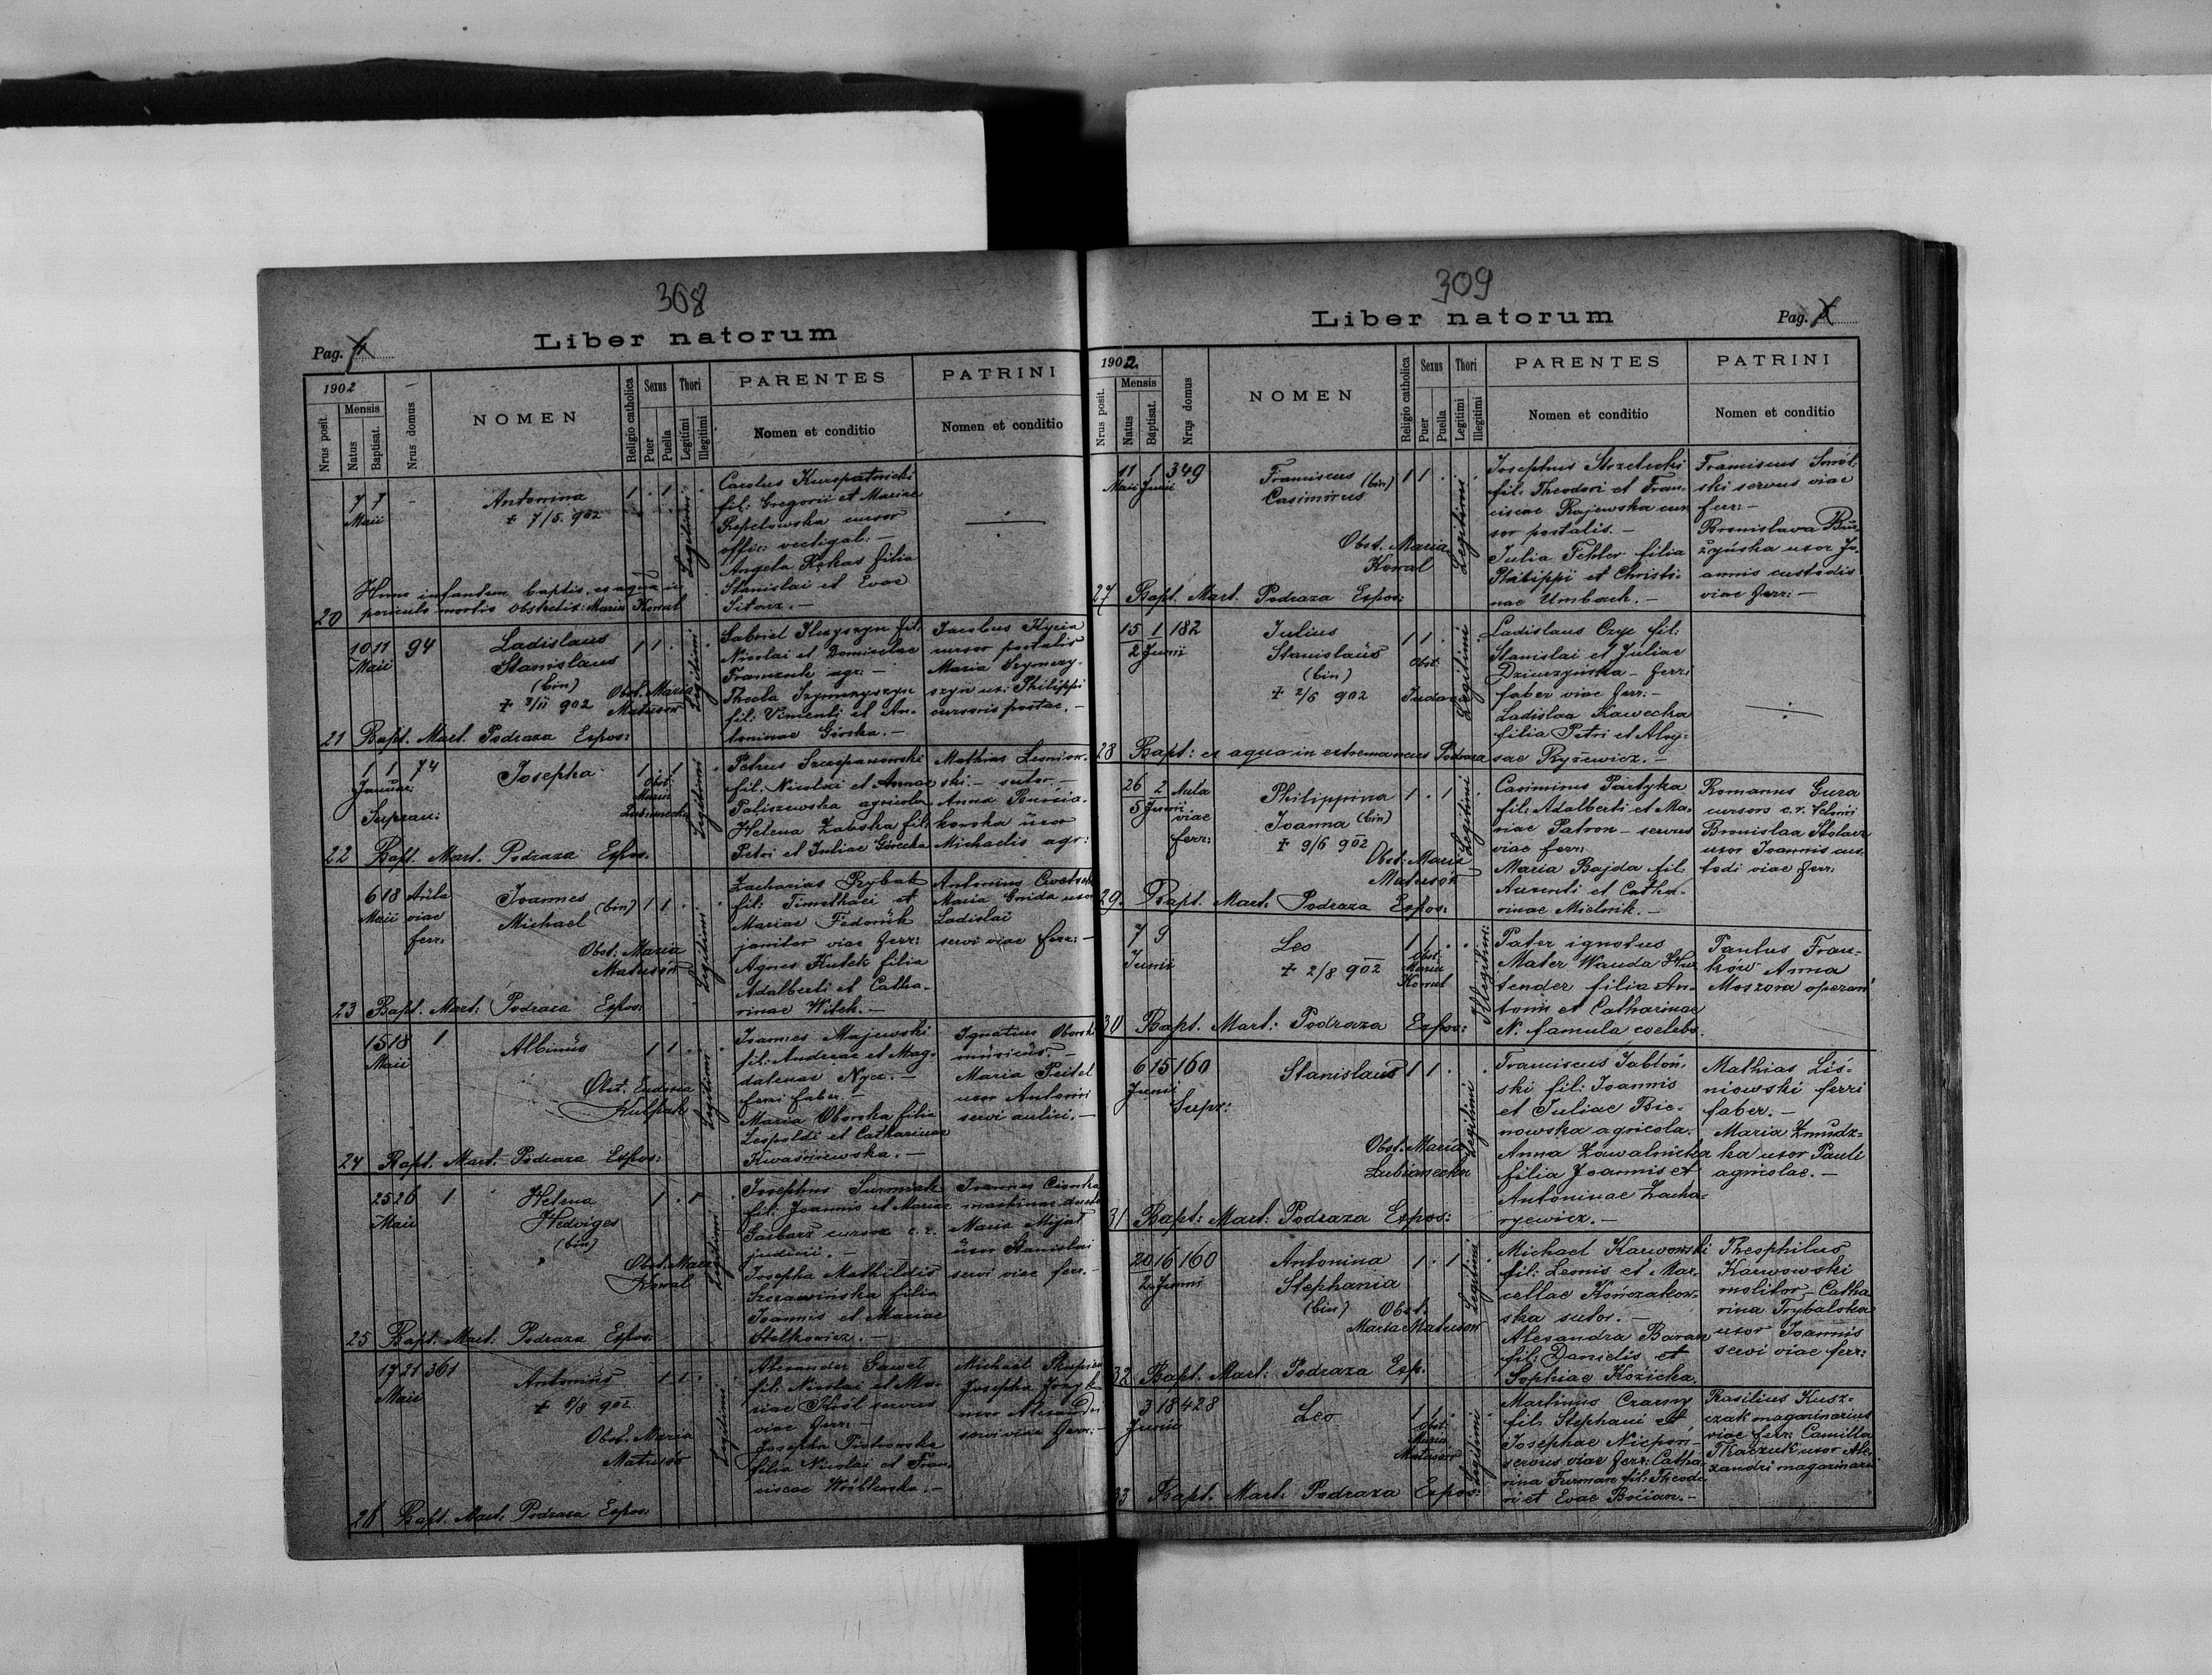 368
Pag. 4
Liber natorum
1902
Nrus posit.
Mensis
Natus
Baptisat.
Nrus domus
NOMEN
Religio catholica
Sexus
Puer
Puella
Thori
Legitimi
Illegitimi
PARENTES
Nomen et conditio
PATRINI
Nomen et conditio
20
7 7
Maii
-
Antonina
+ 7/5 902
Hunc infantem baptis. ex aqua in
periculo mortis Obstetrix: Maria Kowal
1 . 1 .
Legitimi
Carolus Kuropatnicki
fil: Gregorii et Mariae
Repelowska cursor
offic: vectigal: -
Angela Rokas filia
Stanislai et Evae
Sitarz. -
21
10 11
Maii
94
Ladislaus
Stanislaus
(bin)
+ 3/11 902
Obst. Maria
Matusów
Bapt. Mart. Podraza Expos:
1 1 .
Legitimi
Gabriel Ilczyszyn fil:
Nicolai et Domicelae
Franczuk agr: -
Thecla Szymczyszyn
fil: Vincenti et An-
toninae Górska. -
Jacobus Kycia
cursor postalis
Maria Szymczy-
szyn ux: Philippi
cursoris postae. -
22
1 1
Januar:
74
Supran:
Josepha
1 . 1
Obst:
Maria
Lubianecka
Bapt. Mart. Podraza Expos.
Legitimi
Petrus Szczepanowski
fil: Nicolai et Annae
Paliszewska agricola
Helena Zabska fil:
Petri et Juliae Górecka
Mathias Lesniow-
ski - sutor. -
Anna Bursia-
kowska uxor
Michaelis agr:
23
6 18
Maii
Aula
viae
ferr:
Joannes
Michael (bin)
Obst: Maria
Matusów
Bapt. Mart: Podraza Expos:
1 1 . .
Legitimi
Zacharias Rybak
fil: Timothaei et
Mariae Fedoruk
janitor viae ferr:
Agnes Kutek filia
Adalberti et Catha-
rinae Witek. -
Antonius
Maria Gnida uxor
Ladislai
servi viae ferr: -
24
15 18
Maii
1
Albinus
Obst. Eudoxia
Kulpak
Bapt. Mart. Podraza Expos:
1 1 .
Legitimi
Joannes Majewski
fil: Andreae et Mag-
dalenae Nycz. -
ferri faber. -
Maria Oborska filia
Leopoldi et Catharinae
Kwaśniewska. -
Ignatius Oborski
musicus. -
Maria Peitel
uxor Antonii
servi aulici. -
25
25 26
Maii
1
Helena
Hedviges
(bin)
Obst. Maria
Kowal
Bapt: Mart: Podraza Expos:
1 . 1 .
Legitimi
Josephus Surmiak
fil: Joannis et Mariae
Garbarz cursor c. r.
judicii. -
Josepha Mathildis
Szczawińska filia
Joannis et Mariae
Stelkowicz. -
Joannes Cionka
machinae duct
Maria Mijal
uxor Stanislai
servi viae ferr. -
26
17 21
Maii
361
Antonius
+ 8/8 902
Obst. Maria
Matusów
Bapt. Mart: Podraza Expos:
1 1 .
Legitimi
Alexander Gaweł
fil: Nicolai et Ma-
riae Król servus
viae ferr: -
Josepha Piotrowska
filia Nicolai et Fran-
ciscae Wróblewska. -
Michael
Josepha
uxor Alexandri
servi viae ferr: -
309
Liber natorum
Pag. 5
1902
Nrus posit.
Mensis
Natus
Baptisat.
Nrus domus
NOMEN
Religio catholica
Sexus
Puer
Puella
Thori
Legitimi
Illegitimi
PARENTES
Nomen et conditio
PATRINI
Nomen et conditio
27
11 1
Maii Junii
349
Franciscus (bin)
Casimirus
Obst. Maria
Kowal
Bapt. Mart. Podraza Expos:
1 1 .
Legitimi
Josephus Strzelecki
fil: Theodori et Fran-
ciscae Rajewska cur-
sor postalis. -
Julia Fehler filia
Philippi et Christi-
nae Umbach. -
Franciscus Smól-
ski servus viae
ferr: -
Bronislava Bu-
żyńska uxor Jo-
annis custodis
viae ferr: -
28
15 1
2 Junii
182
Julius
Stanislaus
(bin)
+ 2/6 902
1 1 .
Obst:
Bapt: ex aqua in extremaneus Podraza
Legitimi
Ladislaus Czyz fil:
Stanislai et Juliae
Dziurzyńska - ferri
faber viae ferr: -
Ladislaa Kawecka
filia Petri et Aloy-
sae Ryżewicz. -
29.
26 2
5 Junii
Aula
viae
ferr:
Philippina
Joanna (bin)
+ 9/6 902
Obst: Maria
Matusów
Bapt. Mart: Podraza Expos:
1 . 1
Legitimi
Casimirus Partyka
fil: Adalberti et Ma-
riae Patron - servus
viae ferr:
Maria Bajda fil:
Auxenti et Catha-
rinae Mielnik. -
Romanus Gura
cursor c. r.
Bronislaa Stolarz
uxor Joannis cus-
todi viae ferr:
30
7 9
Junii
Leo
+ 2/8 902
1 1 . .
Obst:
Maria
Kowal
Bapt. Mart: Podraza Expos:
Illegitimi:
Pater ignotus
Mater Wanda Hur-
tender filia An-
tonii et Catharinae
N. famula coelebs.
Paulus Fran-
ków Anna
Moszora operari
31
6 15
Junii
160
Supr:
Stanislaus
Obst. Maria
Lubianecka
Bapt: Mart: Podraza Expos:
1 1 . .
Legitimi
Franciscus Jabłoń-
ski fil: Joannis
et Juliae Bie-
nowska agricola.
Anna Zawalnicka
filia Joannis et
Antoninae Zacha-
ryewicz. -
Mathias Liś-
niowski ferri
faber. -
Maria Żmudz-
ka uxor Pauli
agricolae. -
32
20 16
2 Junii
160
Antonina
Stephania
(bin)
Obst.
Maria Matusów
Bapt: Mart: Podraza Exp.
1 . 1 .
Legitimi
Michael Karwowski
fil: Leonis et Mar-
cellae Kończakow-
ska sutor. -
Alexandra Baran
fil: Danielis et
Sophiae Kozicka.
Theophilus
Karwowski
molitor - Catha-
rina Trybalska
uxor Joannis
servi viae ferr:
33
3 18
Junii
428
Leo
1 1 .
Obst:
Maria
Matusów
Bapt. Mart: Podraza Expos:
Legitimi
Martinus Czarny
fil: Stephani et
Josephae Niepoń-
servus viae ferr: Catha-
rina Furman fil: Theodo-
ri et Evae Bocian. -
Basilius Kusz-
czak magazinarius
viae ferr: Camilla
Tkaczuk uxor Ale-
xandri magazinarii